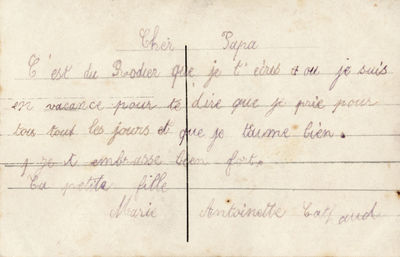 Cher Papa
C'est du Rodier que je t'écris et ou je suis
en vacance pour te dire que je prie pour
tois tout les jours et que je t'aime bien.
je t embrasse bien fort.
Ta petite fille
Marie Antoinette